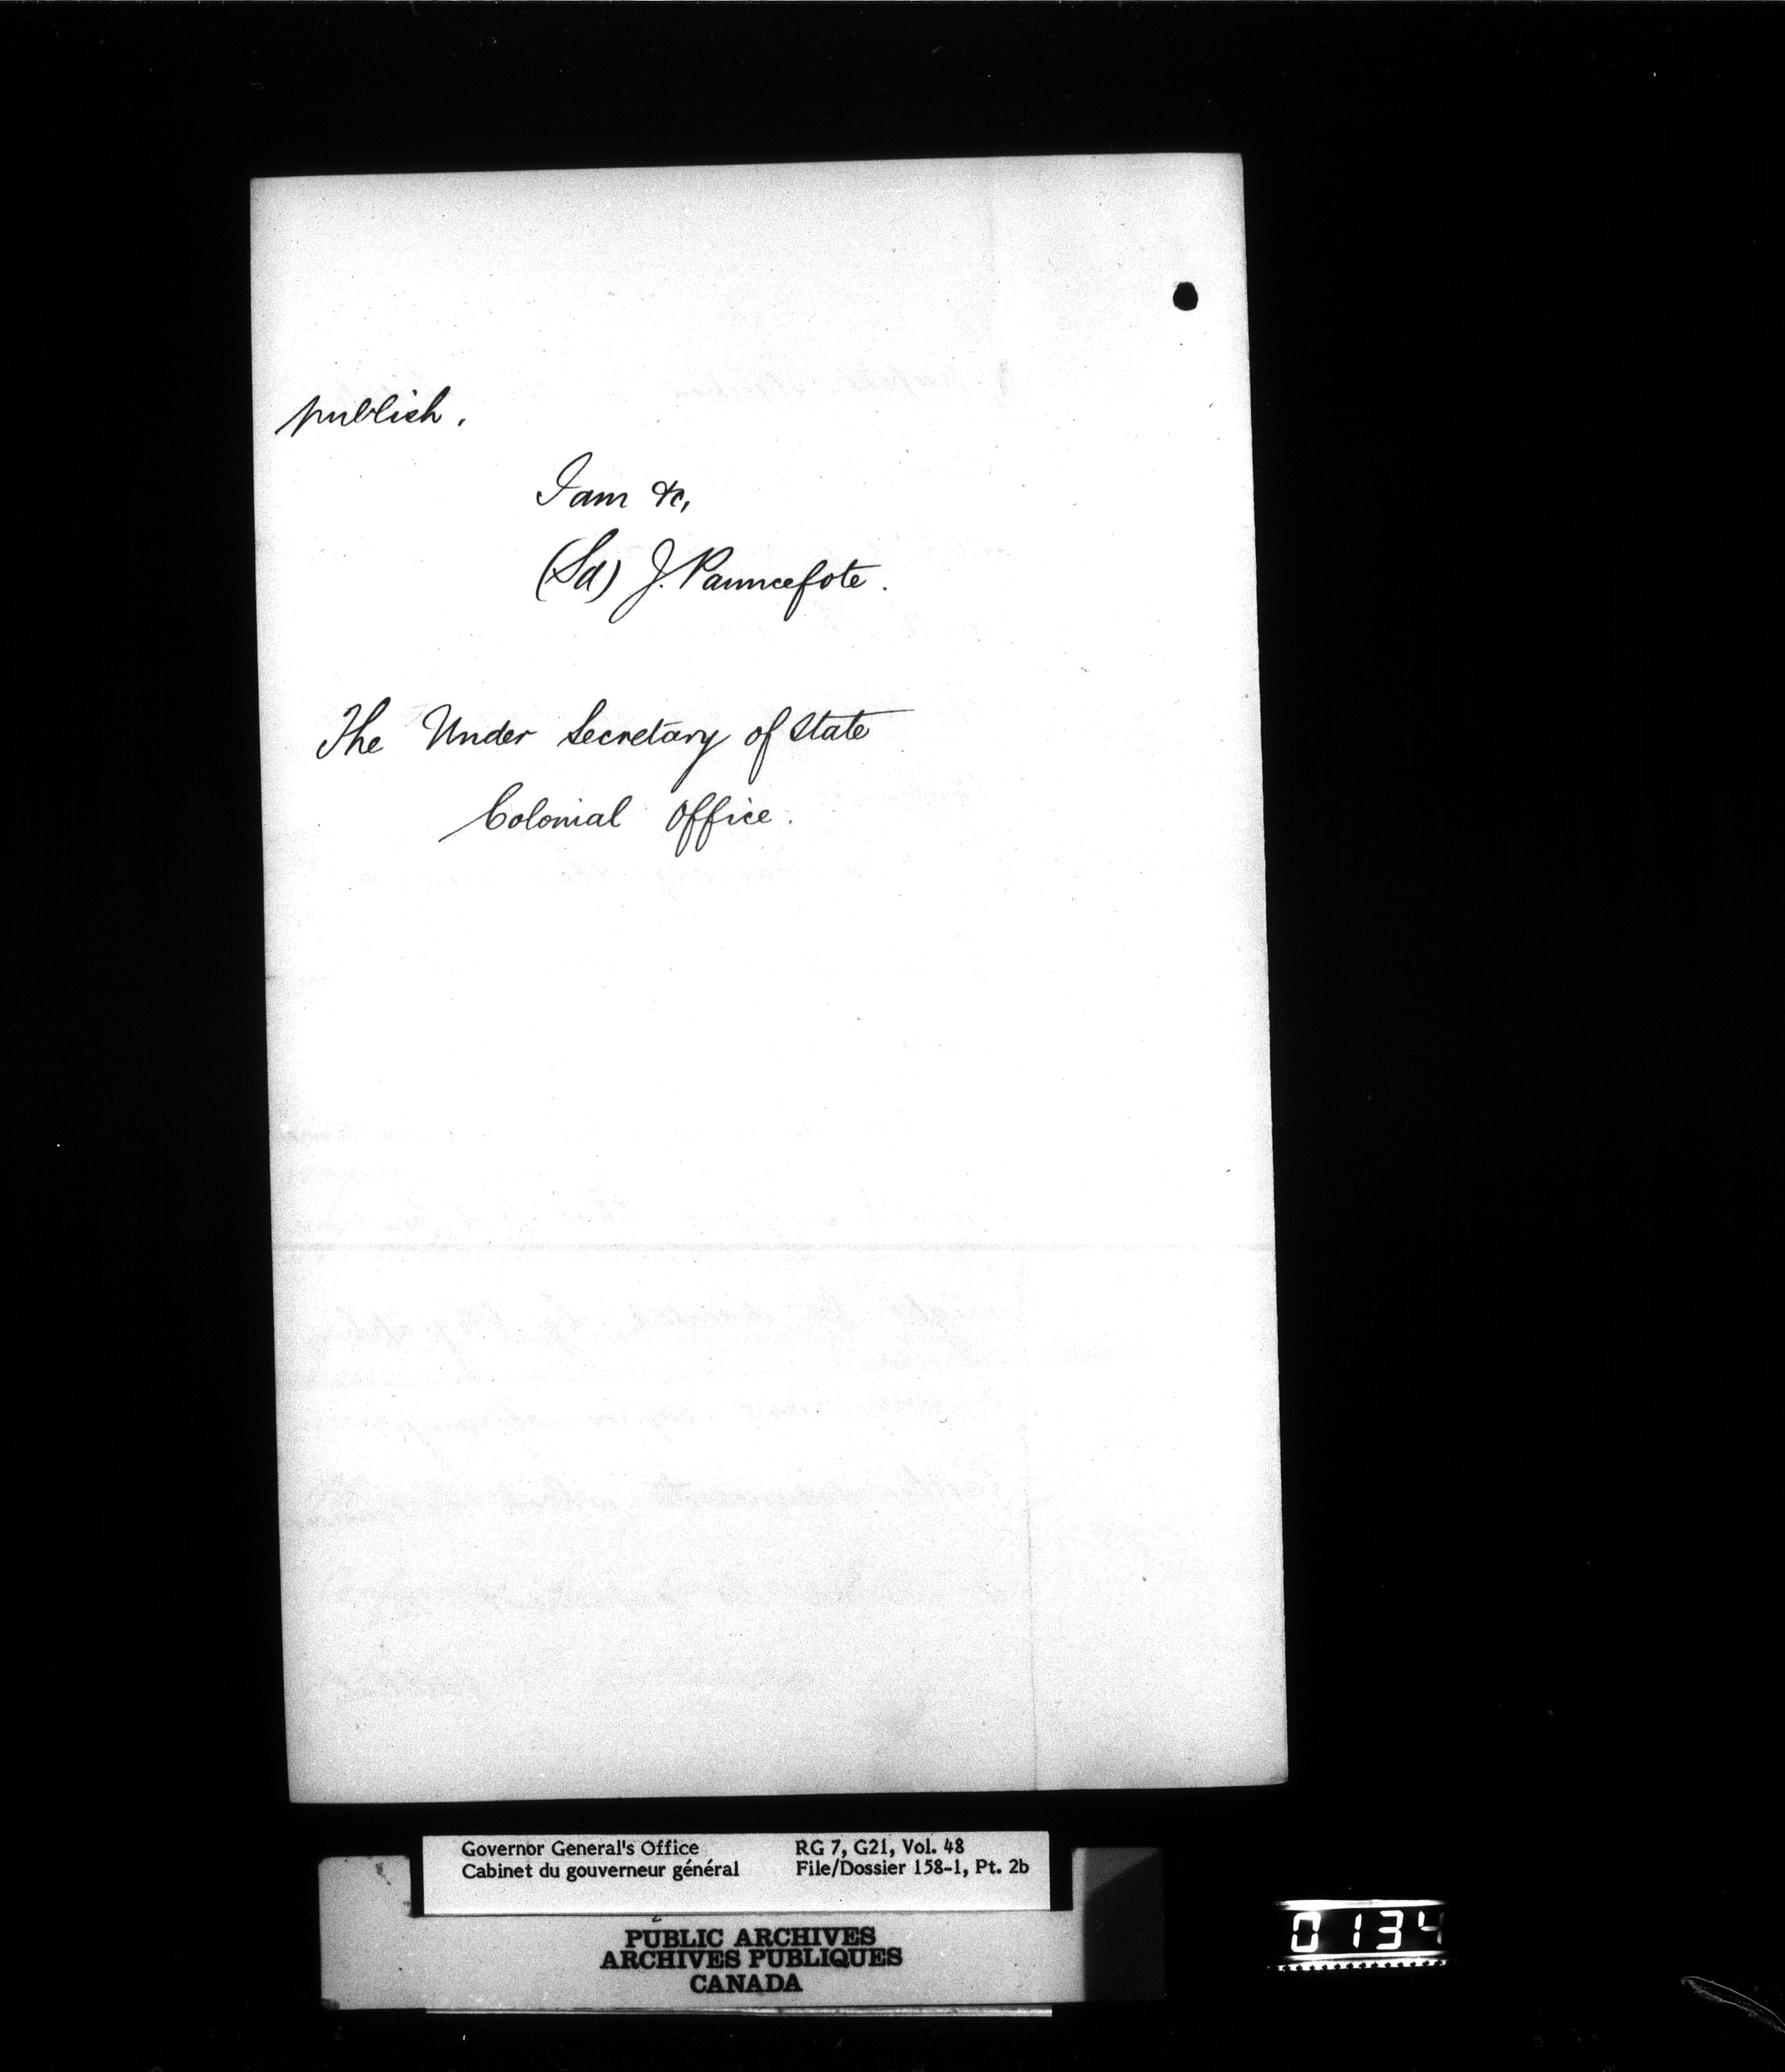 publish.
I am &c,
(Sd) J. Pauncefote.
The Under Secretary of State
Colonial Office.
Governor General's Office RG 7, G21, Vol. 48
Cabinet du gouverneur général File/Dossier 158-1, Pt. 2b
PUBLIC ARCHIVES
ARCHIVES PUBLIQUES
CANADA
0134